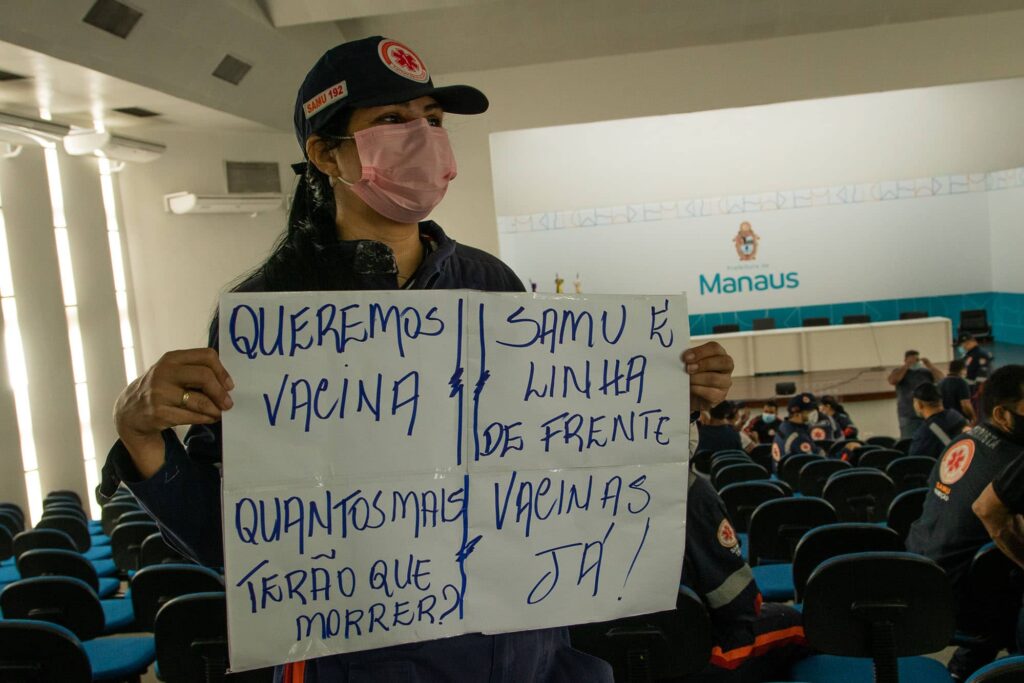 SAMU 192
QUEREMOS
VACINA
SAMU É
LINHA
DE FRENTE
QUANTOS MAIS
TERÃO QUE
MORRER?
VACINAS
JÁ!
Prefeitura de
Manaus
SAMU